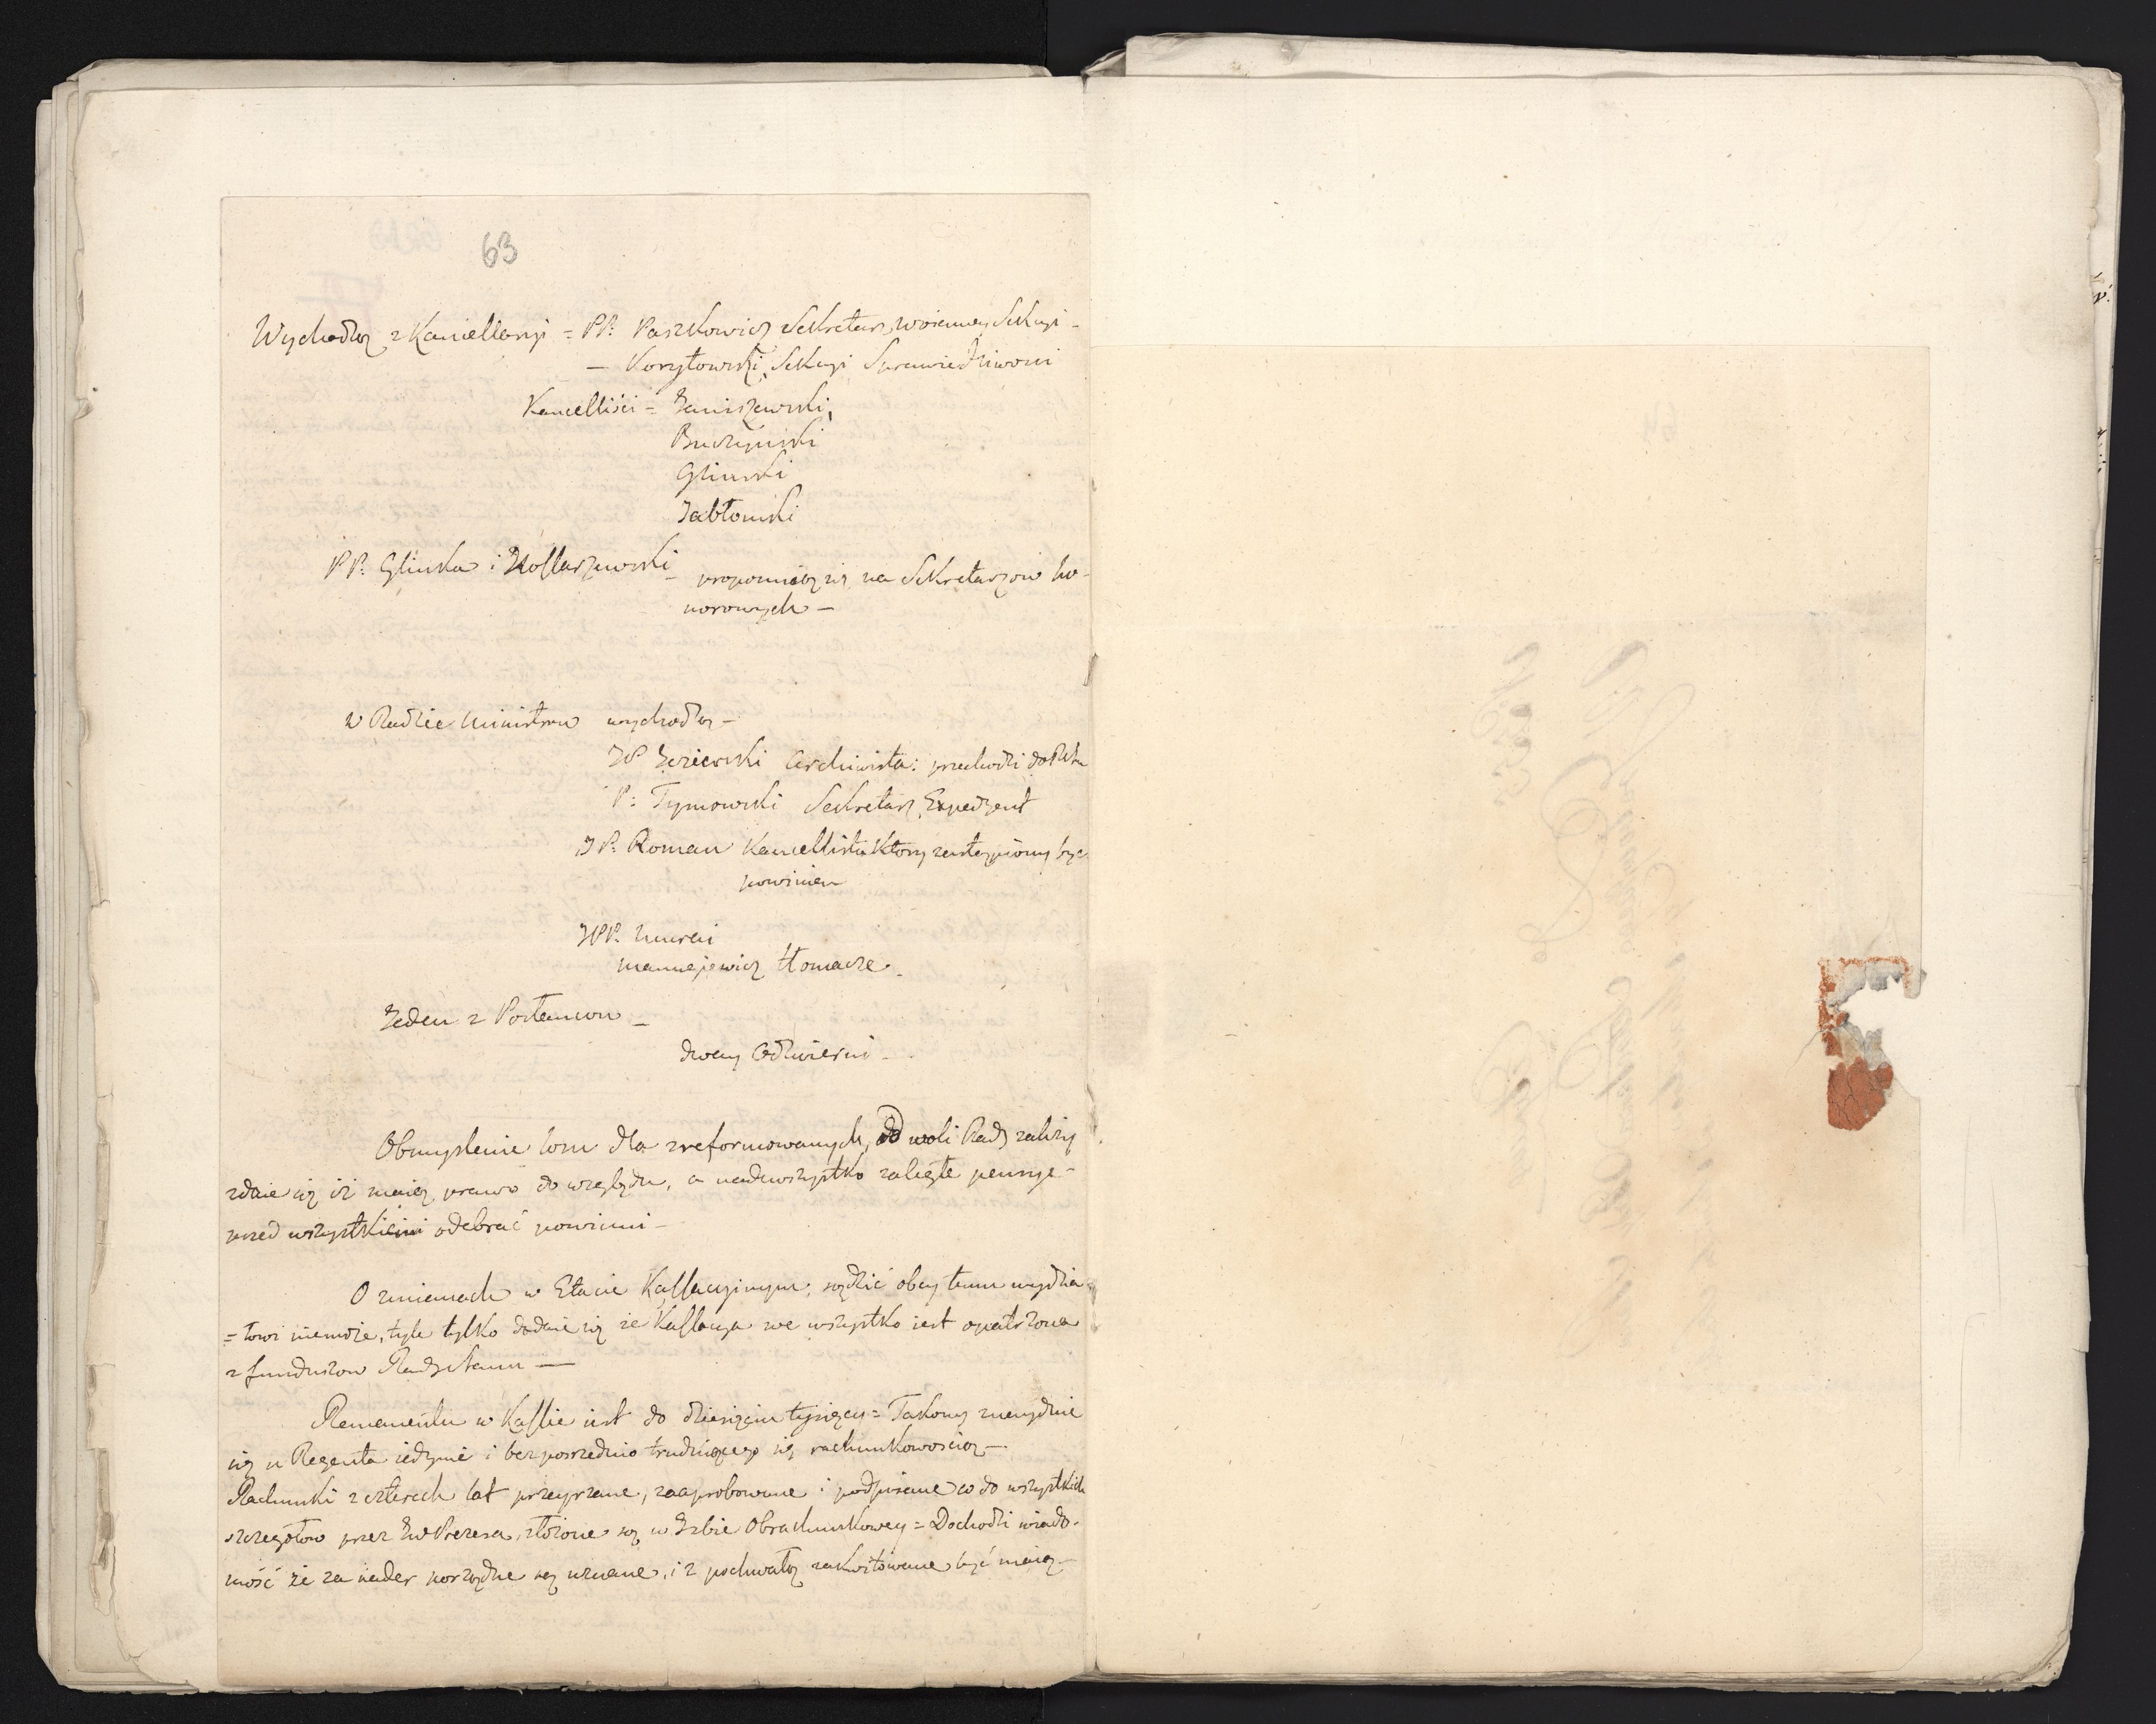 63
Wychodzą z Kancellaryi = PP. Paszkowicz Sekretarz woienney Sekcyi -
- Korytowski, Sekcyi Sprawiedliwości
Kancelliści = Janiszewski,
Buczynski
Glinski
Jabłonski
PP. Glinka i Kossarzewski - proponuią się na Sekretarzow ho-
norowych -
w Radzie Ministrow wychodzą -
JP Archiwista: przechodzi do
P: Tymowski Sekretarz Expedyent
JP. Roman Kancellista który zastąpiony być
powinien
JPP.
tłomacze -
Jeden z Posłancow -
dway Odźwierni -
Obmyslenie losu dla zreformowanych, od woli Rady zależy
zdaie się iż maią prawo do względu, a nadewszystko zaległe pensye -
przed wszystkiemi odebrać powinni -
O zmianach w Etacie Kassacyinym, sądzić obcy temu wydzia-
= łowi niemoże, tyle tylko dodaie się że Kassacya we wszystko iest opatrzona
z funduszow Rady Stanu —
Remanentu w Kassie iest do dziesięciu tysięcy = Takowy znayduie
się u Regenta iedynie i bezposrednio trudniącego się rachunkowoscią -
Rachunki z czterech lat przeyrzane, zaaprobowane i podpisane co do wszystkich
szczegołow przez JW Prezesa, złożone są w Izbie Obrachunkowey = Dochodzi wiado-
mość że za nader porządne są uznane, i z pochwałą zakwitowane być maią -